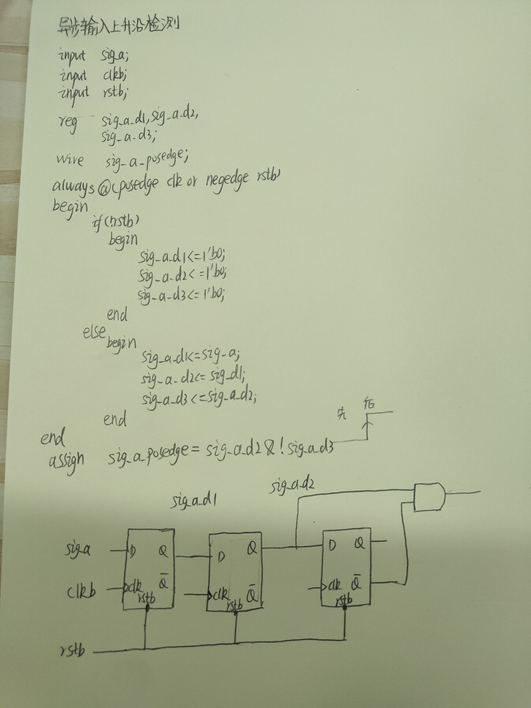 异步输入上升沿检测
input sig_a;
input clkb;
input rstb;
reg sig_a_d1,sig_a_d2,
sig_a_d3;
wire sig_a_posedge;
always@(posedge clk or negedge rstb)
begin
if(!rstb)
begin
sig_a_d1<=1'b0;
sig_a_d2<=1'b0;
sig_a_d3<=1'b0;
end
else
begin
sig_a_d1<=sig_a;
sig_a_d2<=sig_d1;
sig_a_d3<=sig_a_d2;
end
end
先 后
assign sig_a_posedge = sig_a_d2 & !sig_a_d3
sig_a_d1 sig_a_d2
sig_a D Q D Q D Q
clkb clk Q̅ clk Q̅ clk Q̅
rstb rstb rstb
rstb